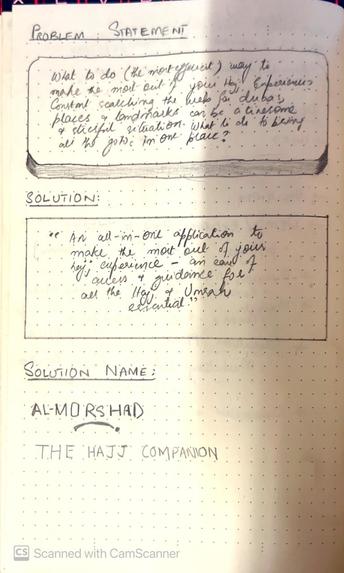 PROBLEM STATEMENT
What to do (the most efficient) way to
make the most out of your Hajj Experiences
Constant searching the webs for duba's
places & landmarks can be a tiresome
& stressful situation. What to do to bring
all the gots in one place?
SOLUTION:
" An all-in-one application to
make the most out of your
hajj experience – an easy of
access & guidance for
all the Hajj & Umrah
essential"
SOLUTION NAME:
AL-MORSHAD
THE HAJJ COMPANION
CS Scanned with CamScanner